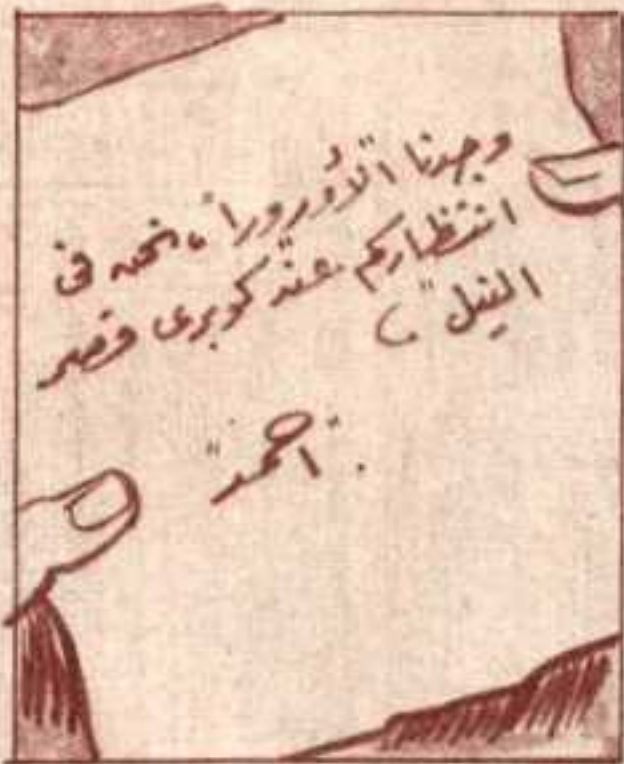 وجدنا "الأورورا"، نحن فى
انتظاركم عند كوبرى قصر
النيل"
"احمد"